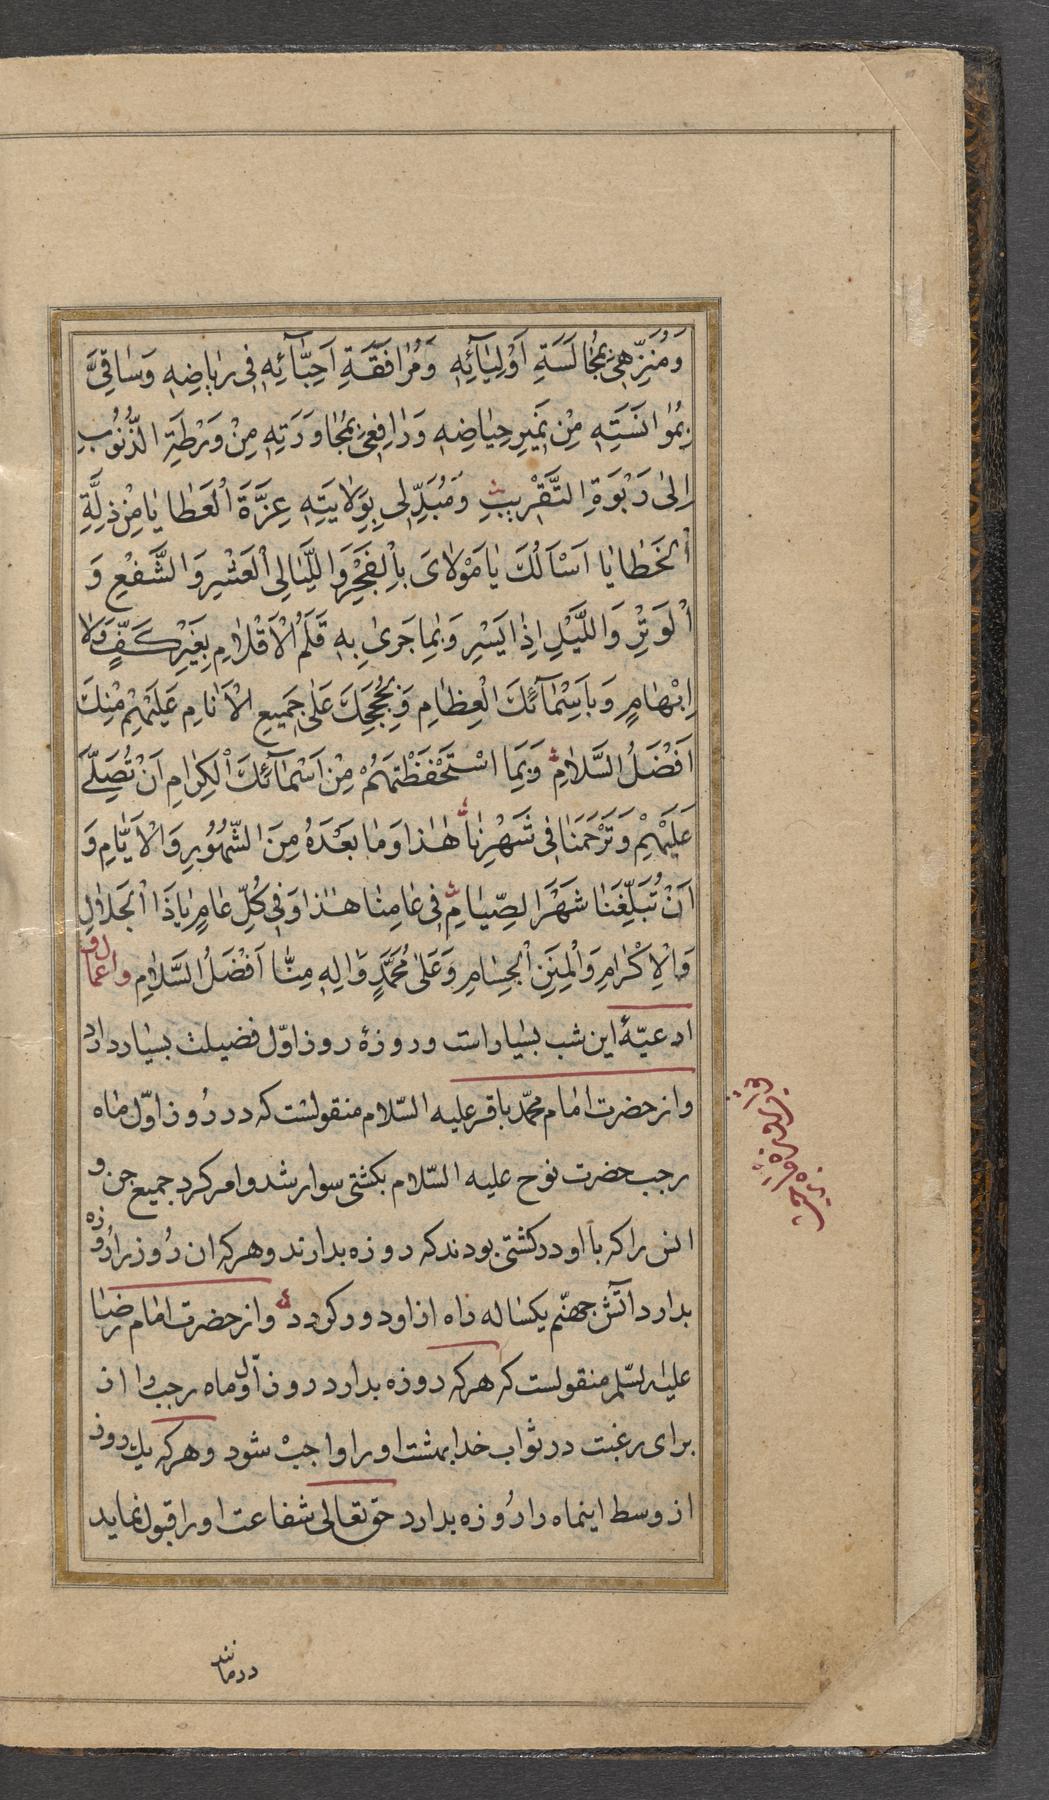 وَمُنَزِّهِی بِمُجٰالَسَةِ اَوْلِیٰآئِهِ وَمُرٰافَقَةِ اَحِبّٰآئِهِ فِی رِیٰاضِهِ وَسٰاقِیَّ
بِمُوٰانَسَتِهِ مِنْ نَمِیرِ حِیٰاضِهِ وَرٰافِعِی بِمُجٰاوَرَتِهِ مِنْ وَرْطَةِ الذُّنُوبِ
اِلیٰ رَبْوَةِ التَّقْرِیبِ وَمُبَدِّلِی بِوَلٰایَتِهِ عِزَّةَ الْعَطٰایٰا مِنْ ذِلَّةِ
الْخَطٰایٰا اَسْاَلُكَ یٰا مَوْلٰایَ بِالْفَجْرِ وَاللَّیٰالِی الْعَشْرِ وَالشَّفْعِ وَ
الْوَتْرِ وَاللَّیْلِ اِذٰا یَسْرِ وَبِمٰا جَریٰ بِهِ قَلَمُ الْاَقْلٰامِ بِغَیْرِ كَفٍّ وَلٰا
اِبْهٰامٍ وَبِاَسْمٰآئِكَ الْعِظٰامِ وَبِحُجَجِكَ عَلیٰ جَمِیعِ الْاَنٰامِ عَلَیْهِمْ مِنْكَ
اَفْضَلُ السَّلٰامِ وَبِمَا اسْتَحْفَظْتَهُمْ مِنْ اَسْمٰآئِكَ الْكِرٰامِ اَنْ تُصَلِّیَ
عَلَیْهِمْ وَتَرْحَمَنٰا فِی شَهْرِنٰا هٰذٰا وَمٰا بَعْدَهُ مِنَ الشُّهُورِ وَالْاَیّٰامِ وَ
اَنْ تُبَلِّغَنٰا شَهْرَ الصِّیٰامِ فِی عٰامِنٰا هٰذٰا وَفِی كُلِّ عٰامٍ یٰا ذَا الْجَلٰالِ
وَالْاِكْرٰامِ وَالْمِنَنِ الْجِسٰامِ وَعَلیٰ مُحَمَّدٍ وَاٰلِهِ مِنّٰا اَفْضَلُ السَّلٰامِ واعمال و
ادعیّهٔ این شب بسیار است وروزهٔ روز اوّل فضیلت بسیار دارد
واز حضرت امام محمّد باقر علیه السّلام منقولست که در رُوز اوّل ماه
رجب حضرت نوح علیه السّلام بکشتی سوار شد وامر کرد جمیع جن و
انس را که با او در کشتی بودند که روزه بدارند وهر که ان رُوز را رُوزه
بدارد اتش جهنّم یکساله راه از او دور کردد واز حضرت امام رضا
علیه السّلم منقولست که هر که روزه بدارد روز اوّل ماه رجب را از
برای رغبت در ثواب خدا بهشت او را واجبْ شود وهر که یك روز
از وسط اینماه را رُوزه بدارد حق تعالی شفاعت او را قبول نماید
درمانند